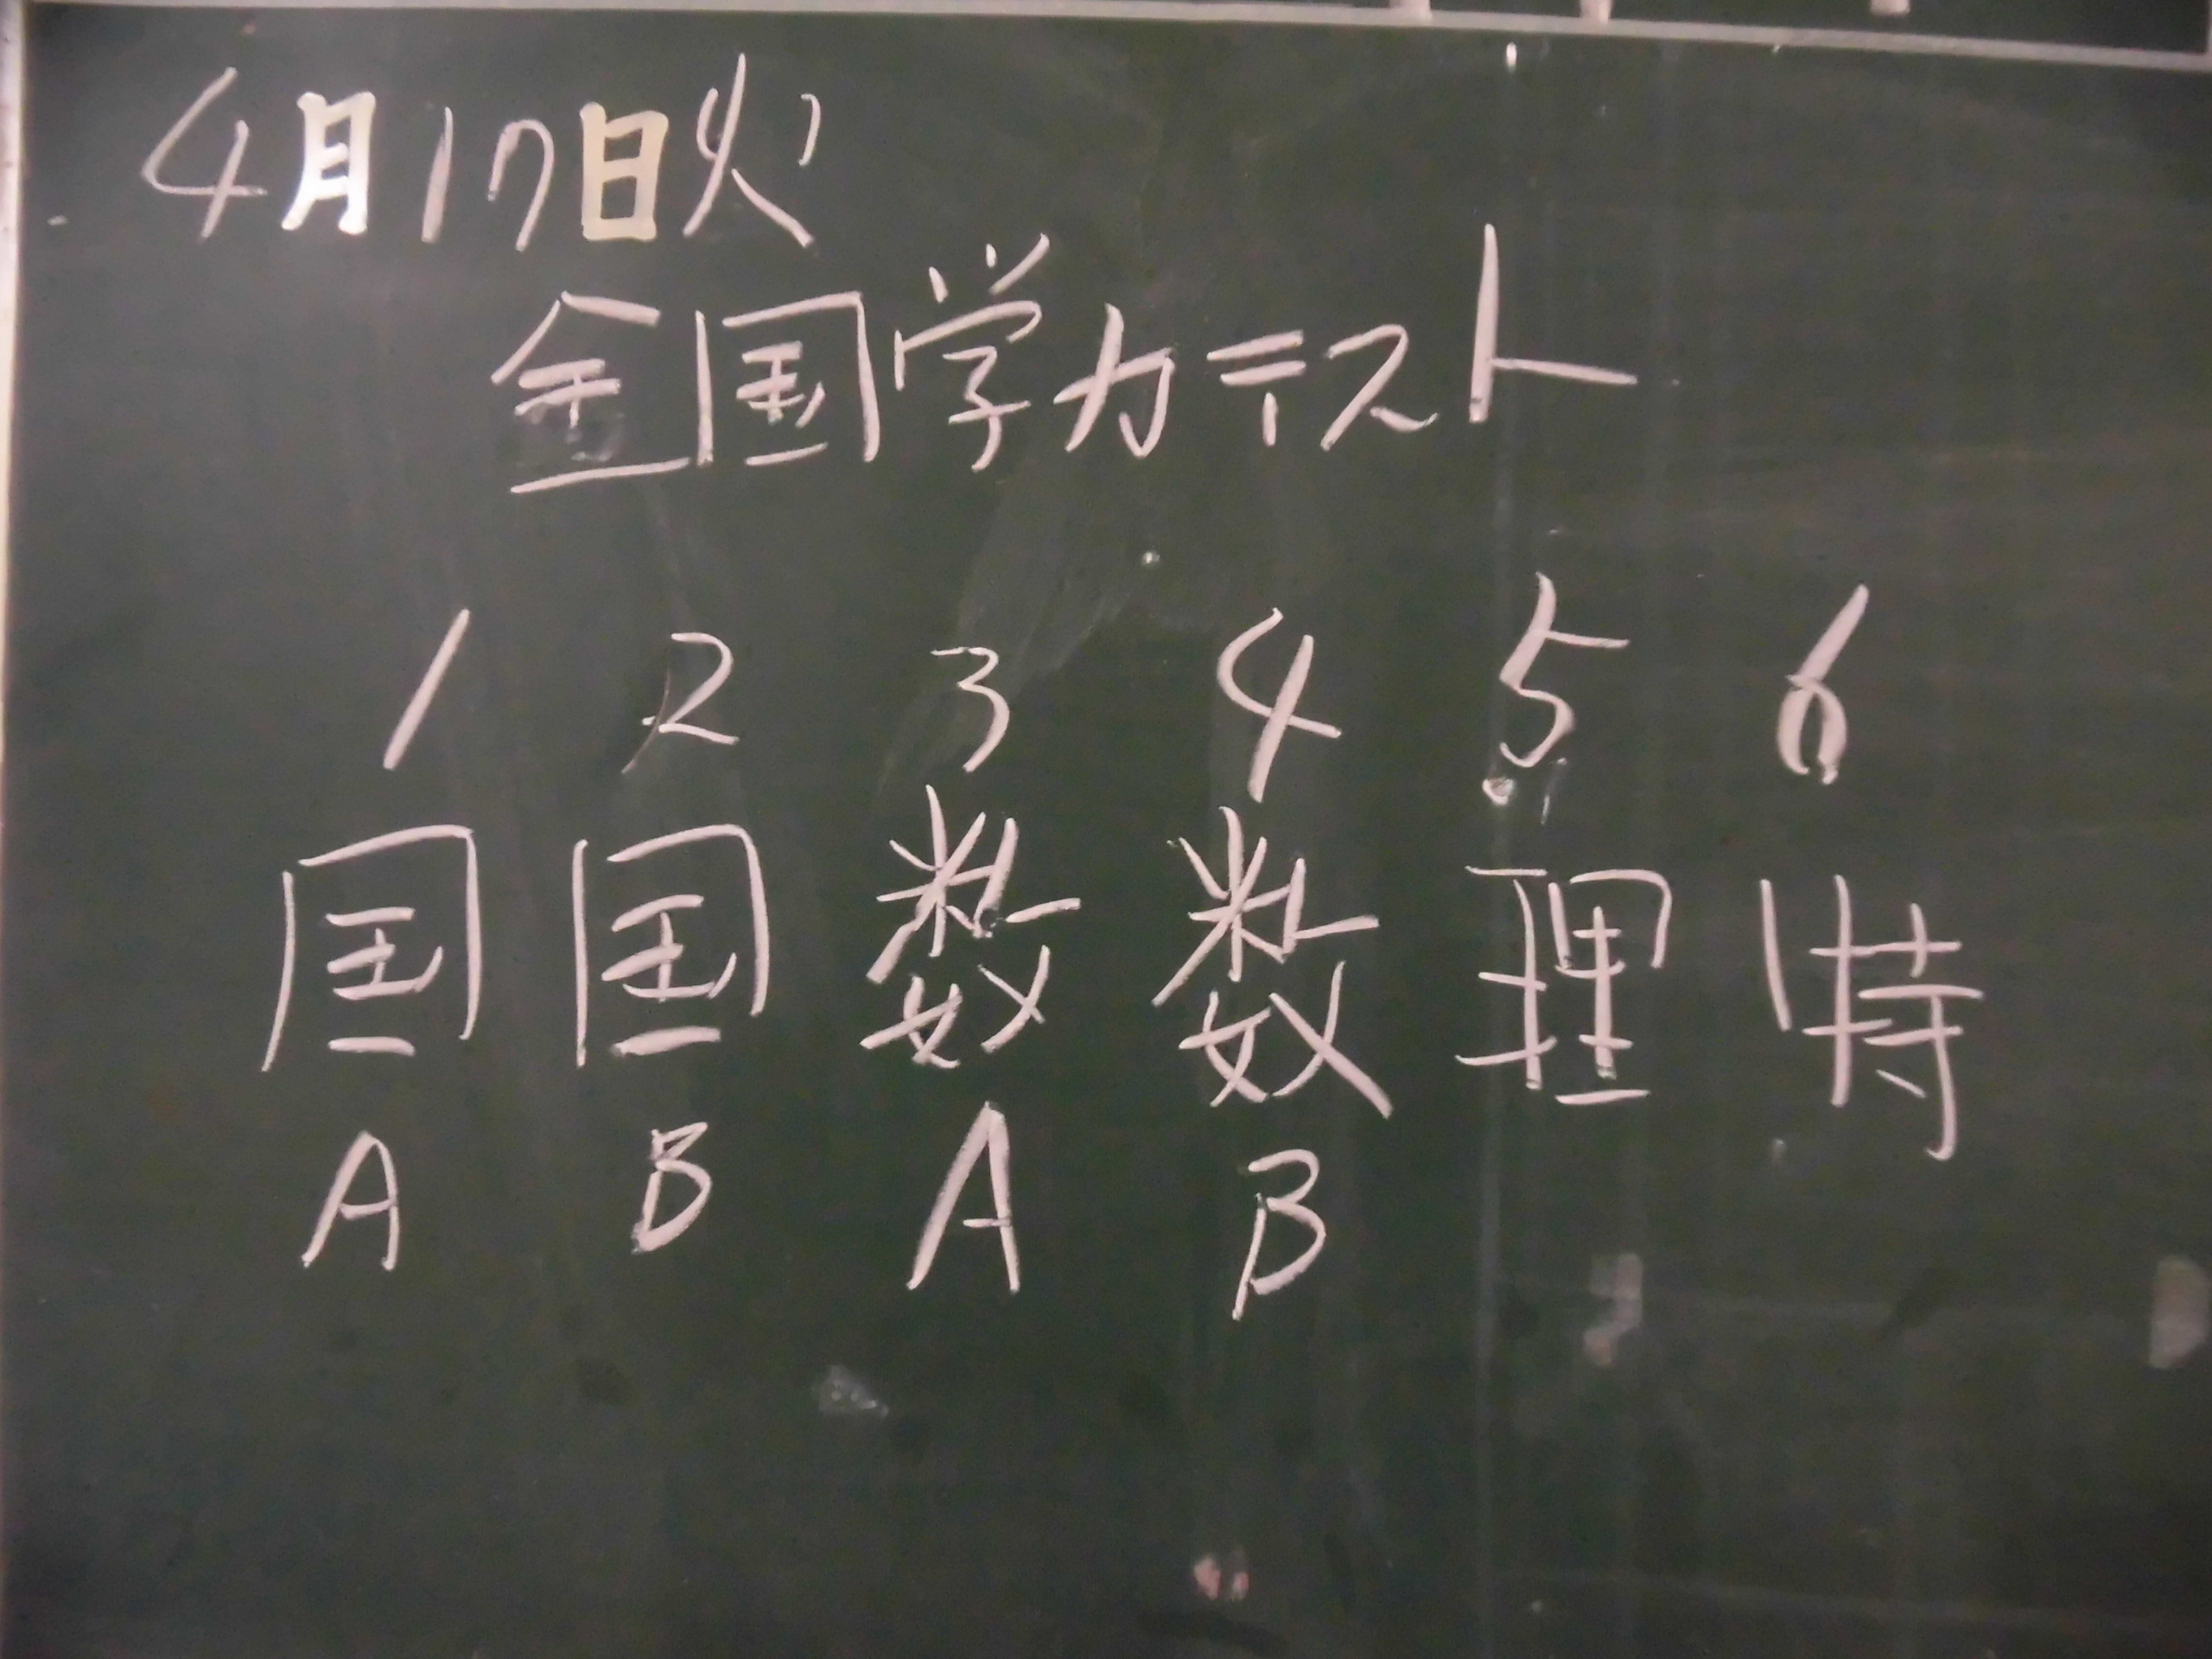 4月17日火
全国学力テスト
1 2 3 4 5 6
国 国 数 数 理 特
A B A B